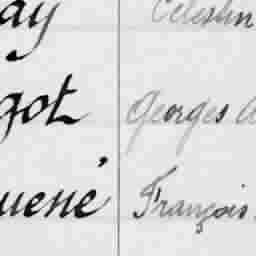 ay Célestin
got Georges A
uené François